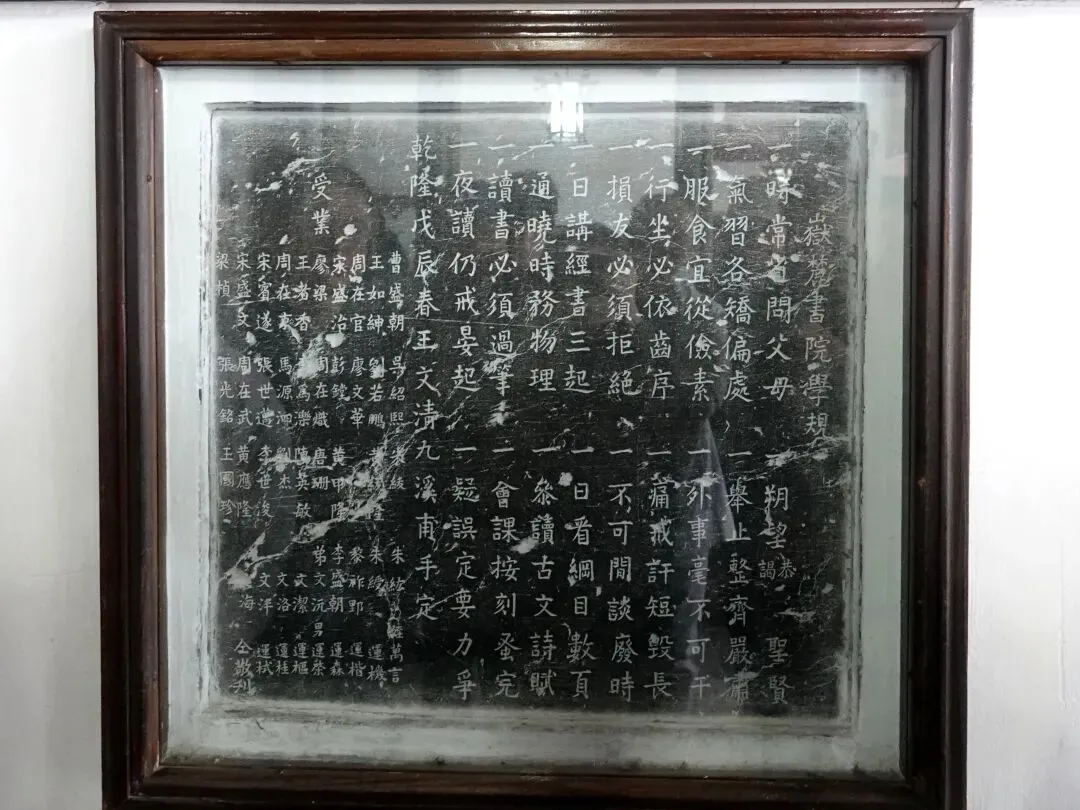 嶽麓書院學規
一時常省問父母 一朔望恭謁 聖賢
一氣習各矯偏處 一舉止整齊嚴肅
一服食宜從儉素 一外事毫不可干
一行坐必依齒序 一痛戒訐短毀長
一損友必須拒絕 一不可閒談廢時
一日講經書三起 一日看綱目數頁
一通曉時務物理 一叅讀古文詩賦
一讀書必須過筆 一會課按刻蚤完
一夜讀仍戒晏起 一疑誤定要力爭
乾隆戊辰春王文清九溪甫手定
受業
曹盛朝 吳紹熙 綾 朱 萬言
王如紳 劉若鵬 朱綬 運機
周在官 廖文華 黎祚野 運楷
宋盛治 彭鏜 黃甲隆 李盛朝 運森
廖梁 周在熾 唐珊 弟文沅 男運泰
王者香 萬濼 陳英敏 文潔 運樞
周在 馬源泗 劉杰 文洛 運
宋賓遂 張世 李世浚 文洋 運栻
宋盛文 周在武 黃鷹隆 海 仝敬刋
梁楨 張光銘 王國珍